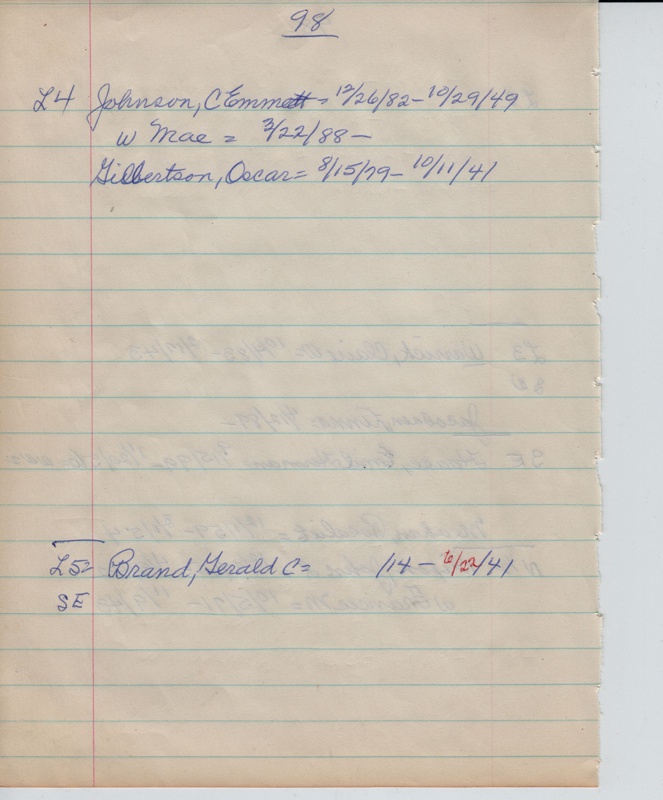 98
L4 Johnson, C Emmett = 12/26/82 - 10/29/49
w Mae = 3/22/88 -
Gilbertson, Oscar = 8/15/79 - 10/11/41
L5 = Brand, Gerald C = /14 - 6/22/41
SE